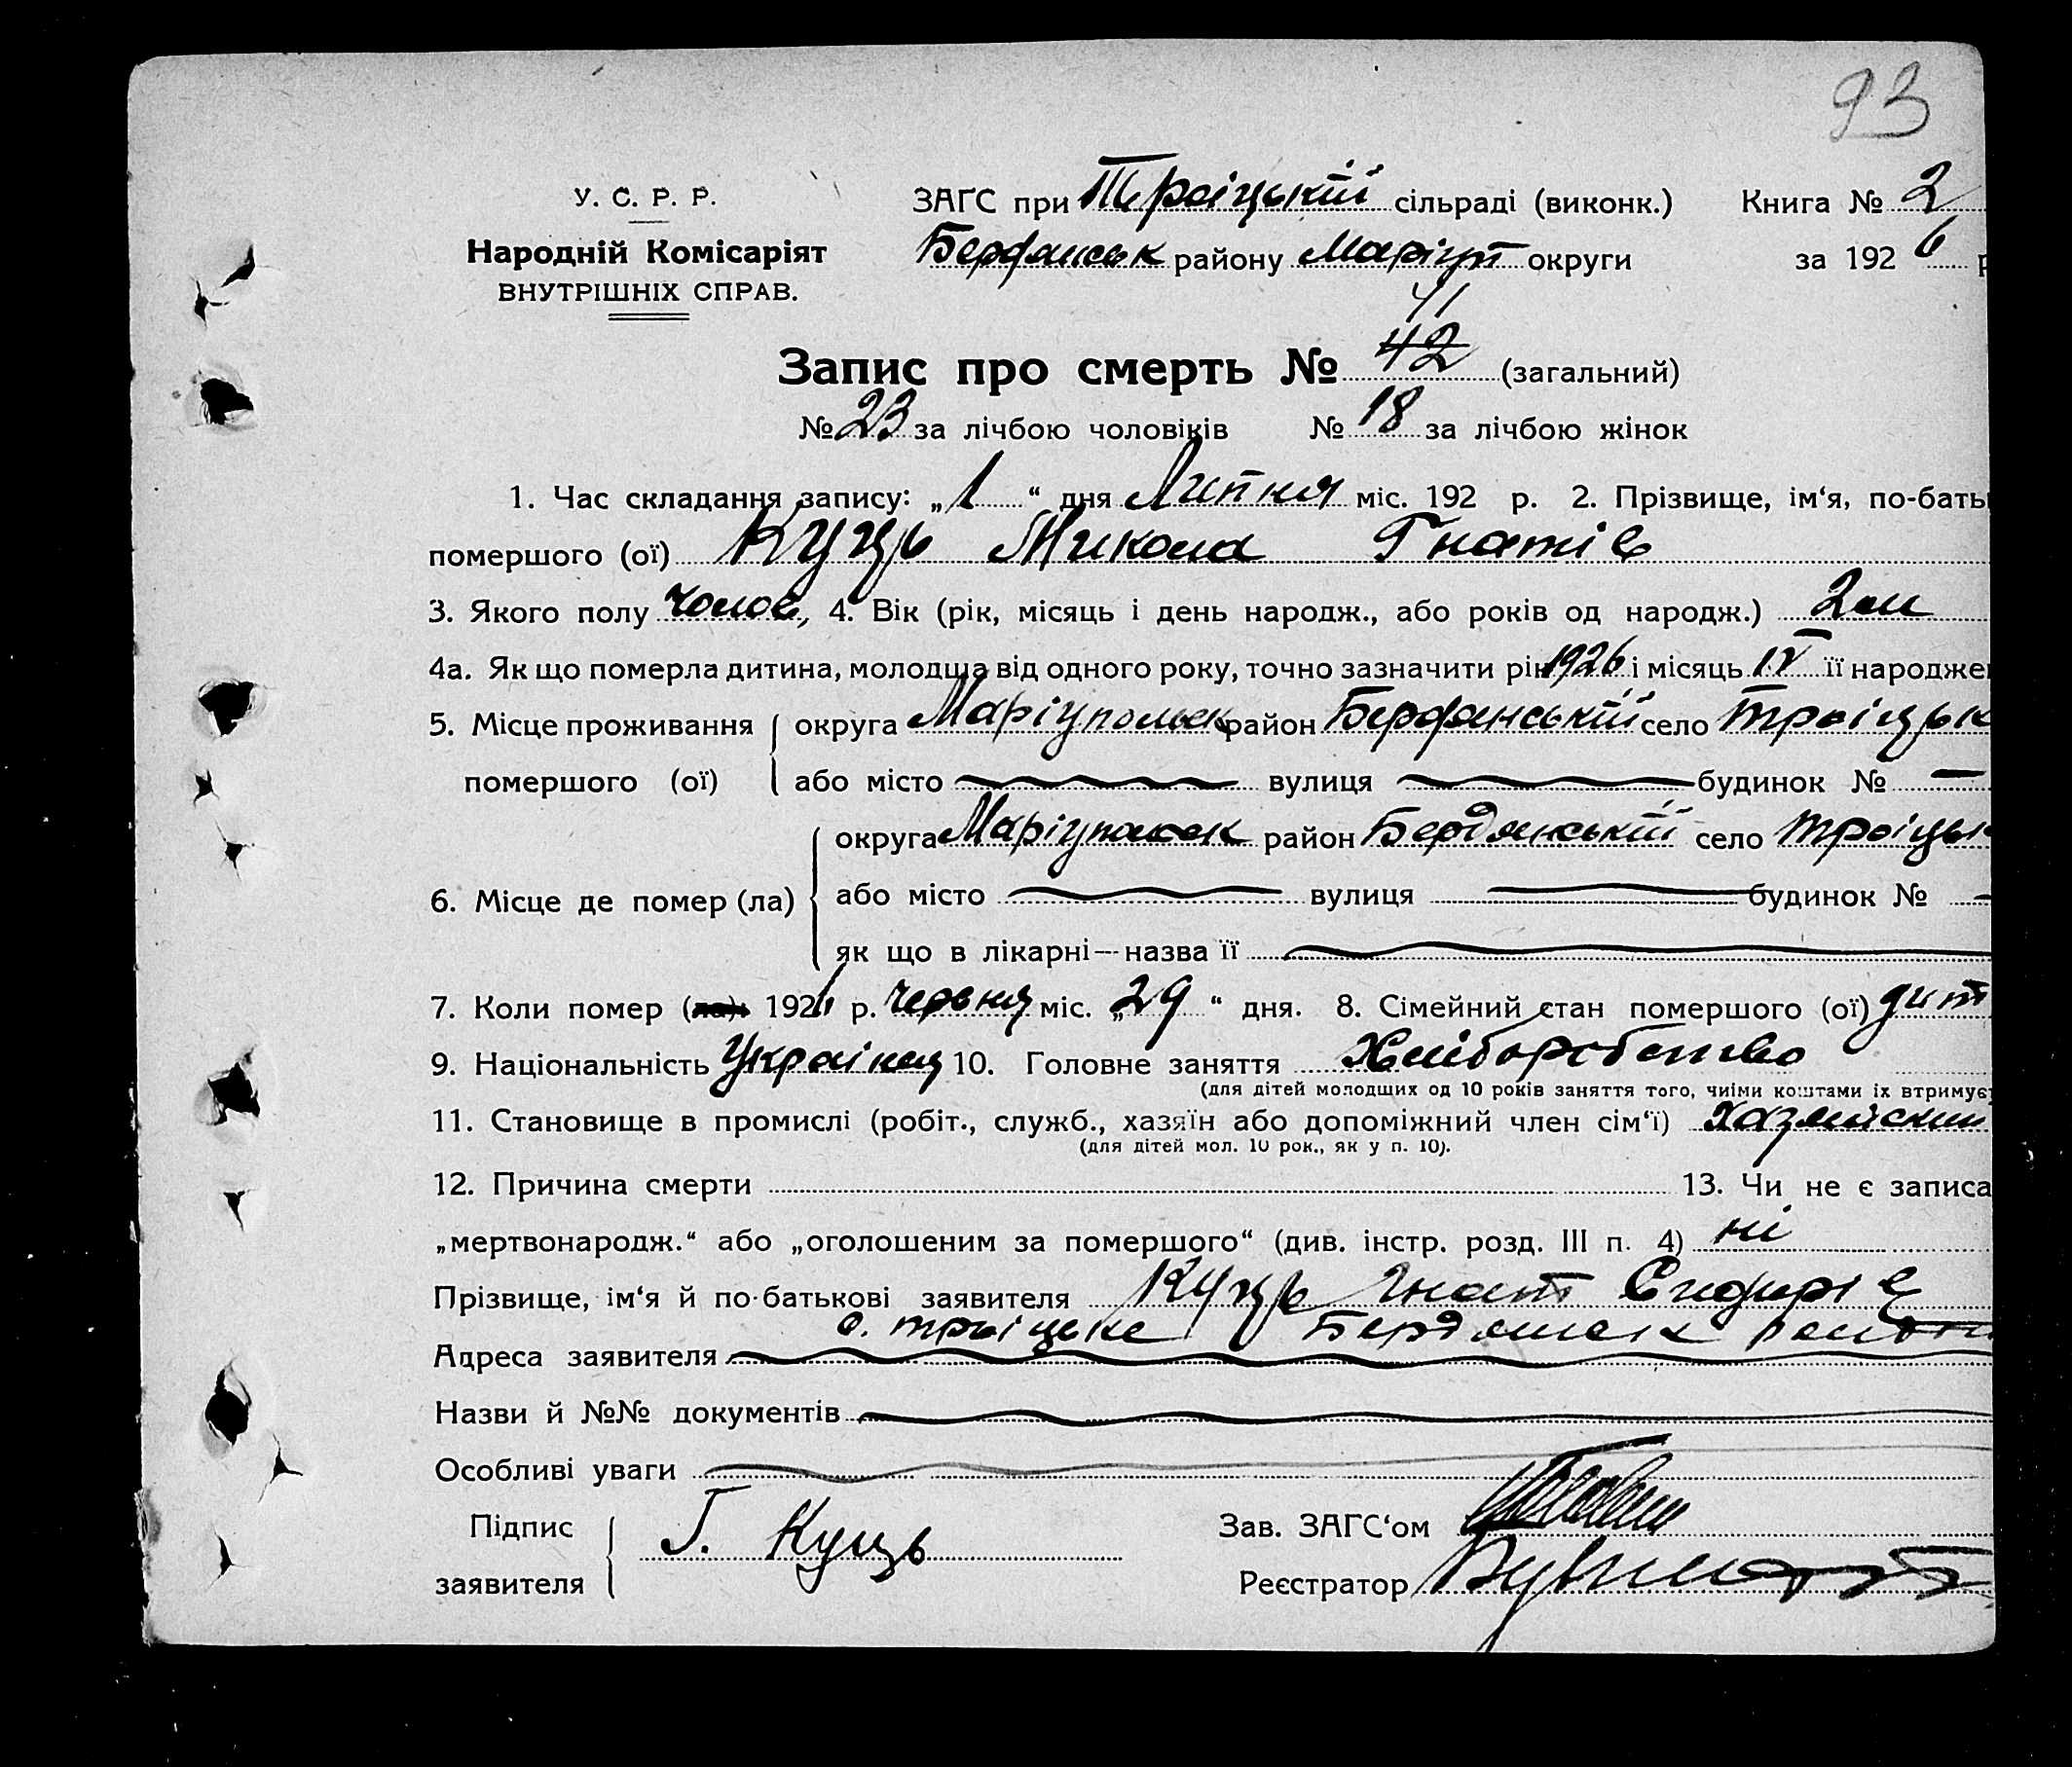 93
У. С. Р. Р. ЗАГС при Троіцькій сільраді (виконк.) Книга № 2
Народній Комісаріят Бердянськ району Маріуп округи за 1926 р
ВНУТРІШНІХ СПРАВ.
41
Запис про смерть № 42 (загальний)
№ 23 за лічбою чоловіків № 18 за лічбою жінок
1. Час складання запису: „1“ дня Липня міс. 192 р. 2. Прізвище, ім‘я, по-бать
помершого (ої) Куць Микола Гнатів
3. Якого полу чолов, 4. Вік (рік, місяць і день народж., або років од народж.) 2 м
4а. Як що померла дитина, молодща від одного року, точно зазначити рік 1926 і місяць IV її народже
5. Місце проживання округа Маріупольськ район Бердянській село Троіцьк
помершого (ої) або місто вулиця будинок № —
округа Маріупольськ район Бердянській село Троіцьк
6. Місце де помер (ла) або місто вулиця будинок № —
як що в лікарні — назва її
7. Коли помер (ла) 1926 р. Червня міс. „29“ дня. 8. Сімейний стан помершого (ої) дит
9. Національність 10. Головне заняття Хліборобство
(для дітей молодших од 10 років заняття того, чиїми коштами їх втримує
11. Становище в промислі (робіт., служб., хазяїн або допоміжний член сім‘ї)
(для дітей мол. 10 рок., як у п. 10).
12. Причина смерти 13. Чи не є записа
„мертвонародж.“ або „оголошеним за помершого“ (див. інстр. розд. III п. 4) ні
Прізвище, ім‘я й по-батькові заявителя Куць Гнат
с. Троіцьке Бердянськ район
Адреса заявителя
Назви й №№ документів
Особливі уваги
Підпис Г. Куць Зав. ЗАГС‘ом
заявителя Реєстратор